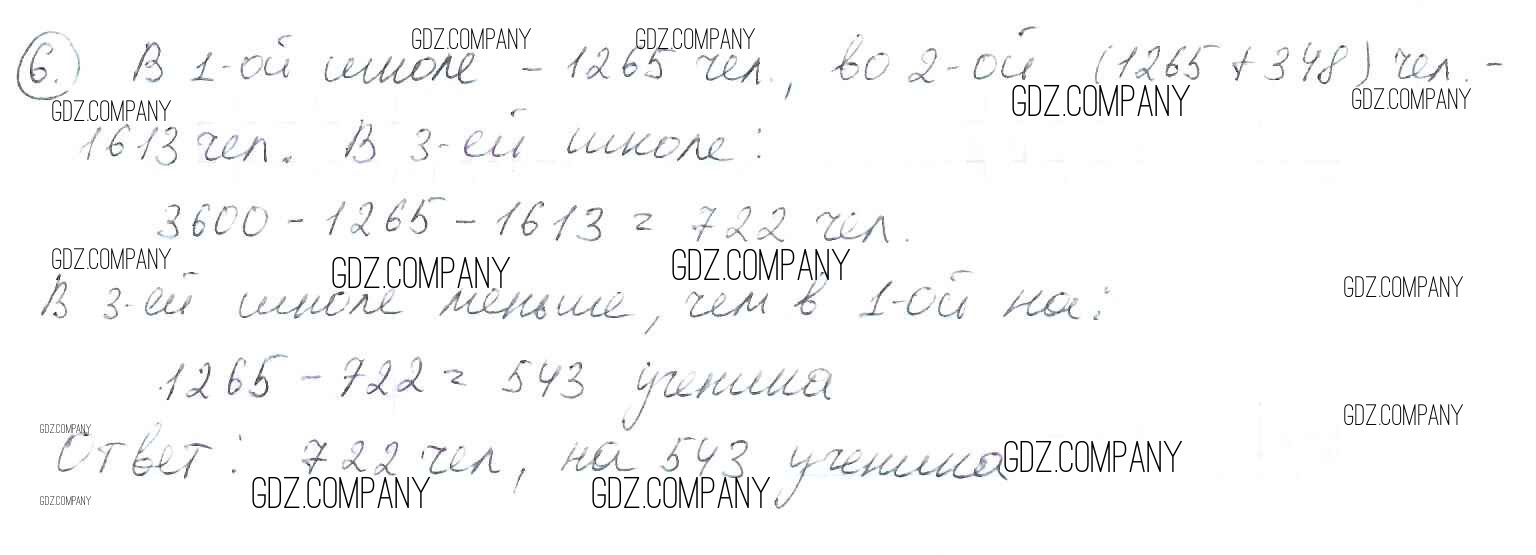 6. В 1-ой школе - 1265 чел., во 2-ой (1265 + 348) чел. -
1613 чел. В 3-ей школе:
3600 - 1265 - 1613 = 722 чел.
В 3-ей школе меньше, чем в 1-ой на:
1265 - 722 = 543 ученика
Ответ: 722 чел, на 543 ученика
GDZ.COMPANY GDZ.COMPANY
GDZ.COMPANY GDZ.COMPANY GDZ.COMPANY
GDZ.COMPANY GDZ.COMPANY GDZ.COMPANY GDZ.COMPANY
GDZ.COMPANY GDZ.COMPANY GDZ.COMPANY
GDZ.COMPANY GDZ.COMPANY GDZ.COMPANY